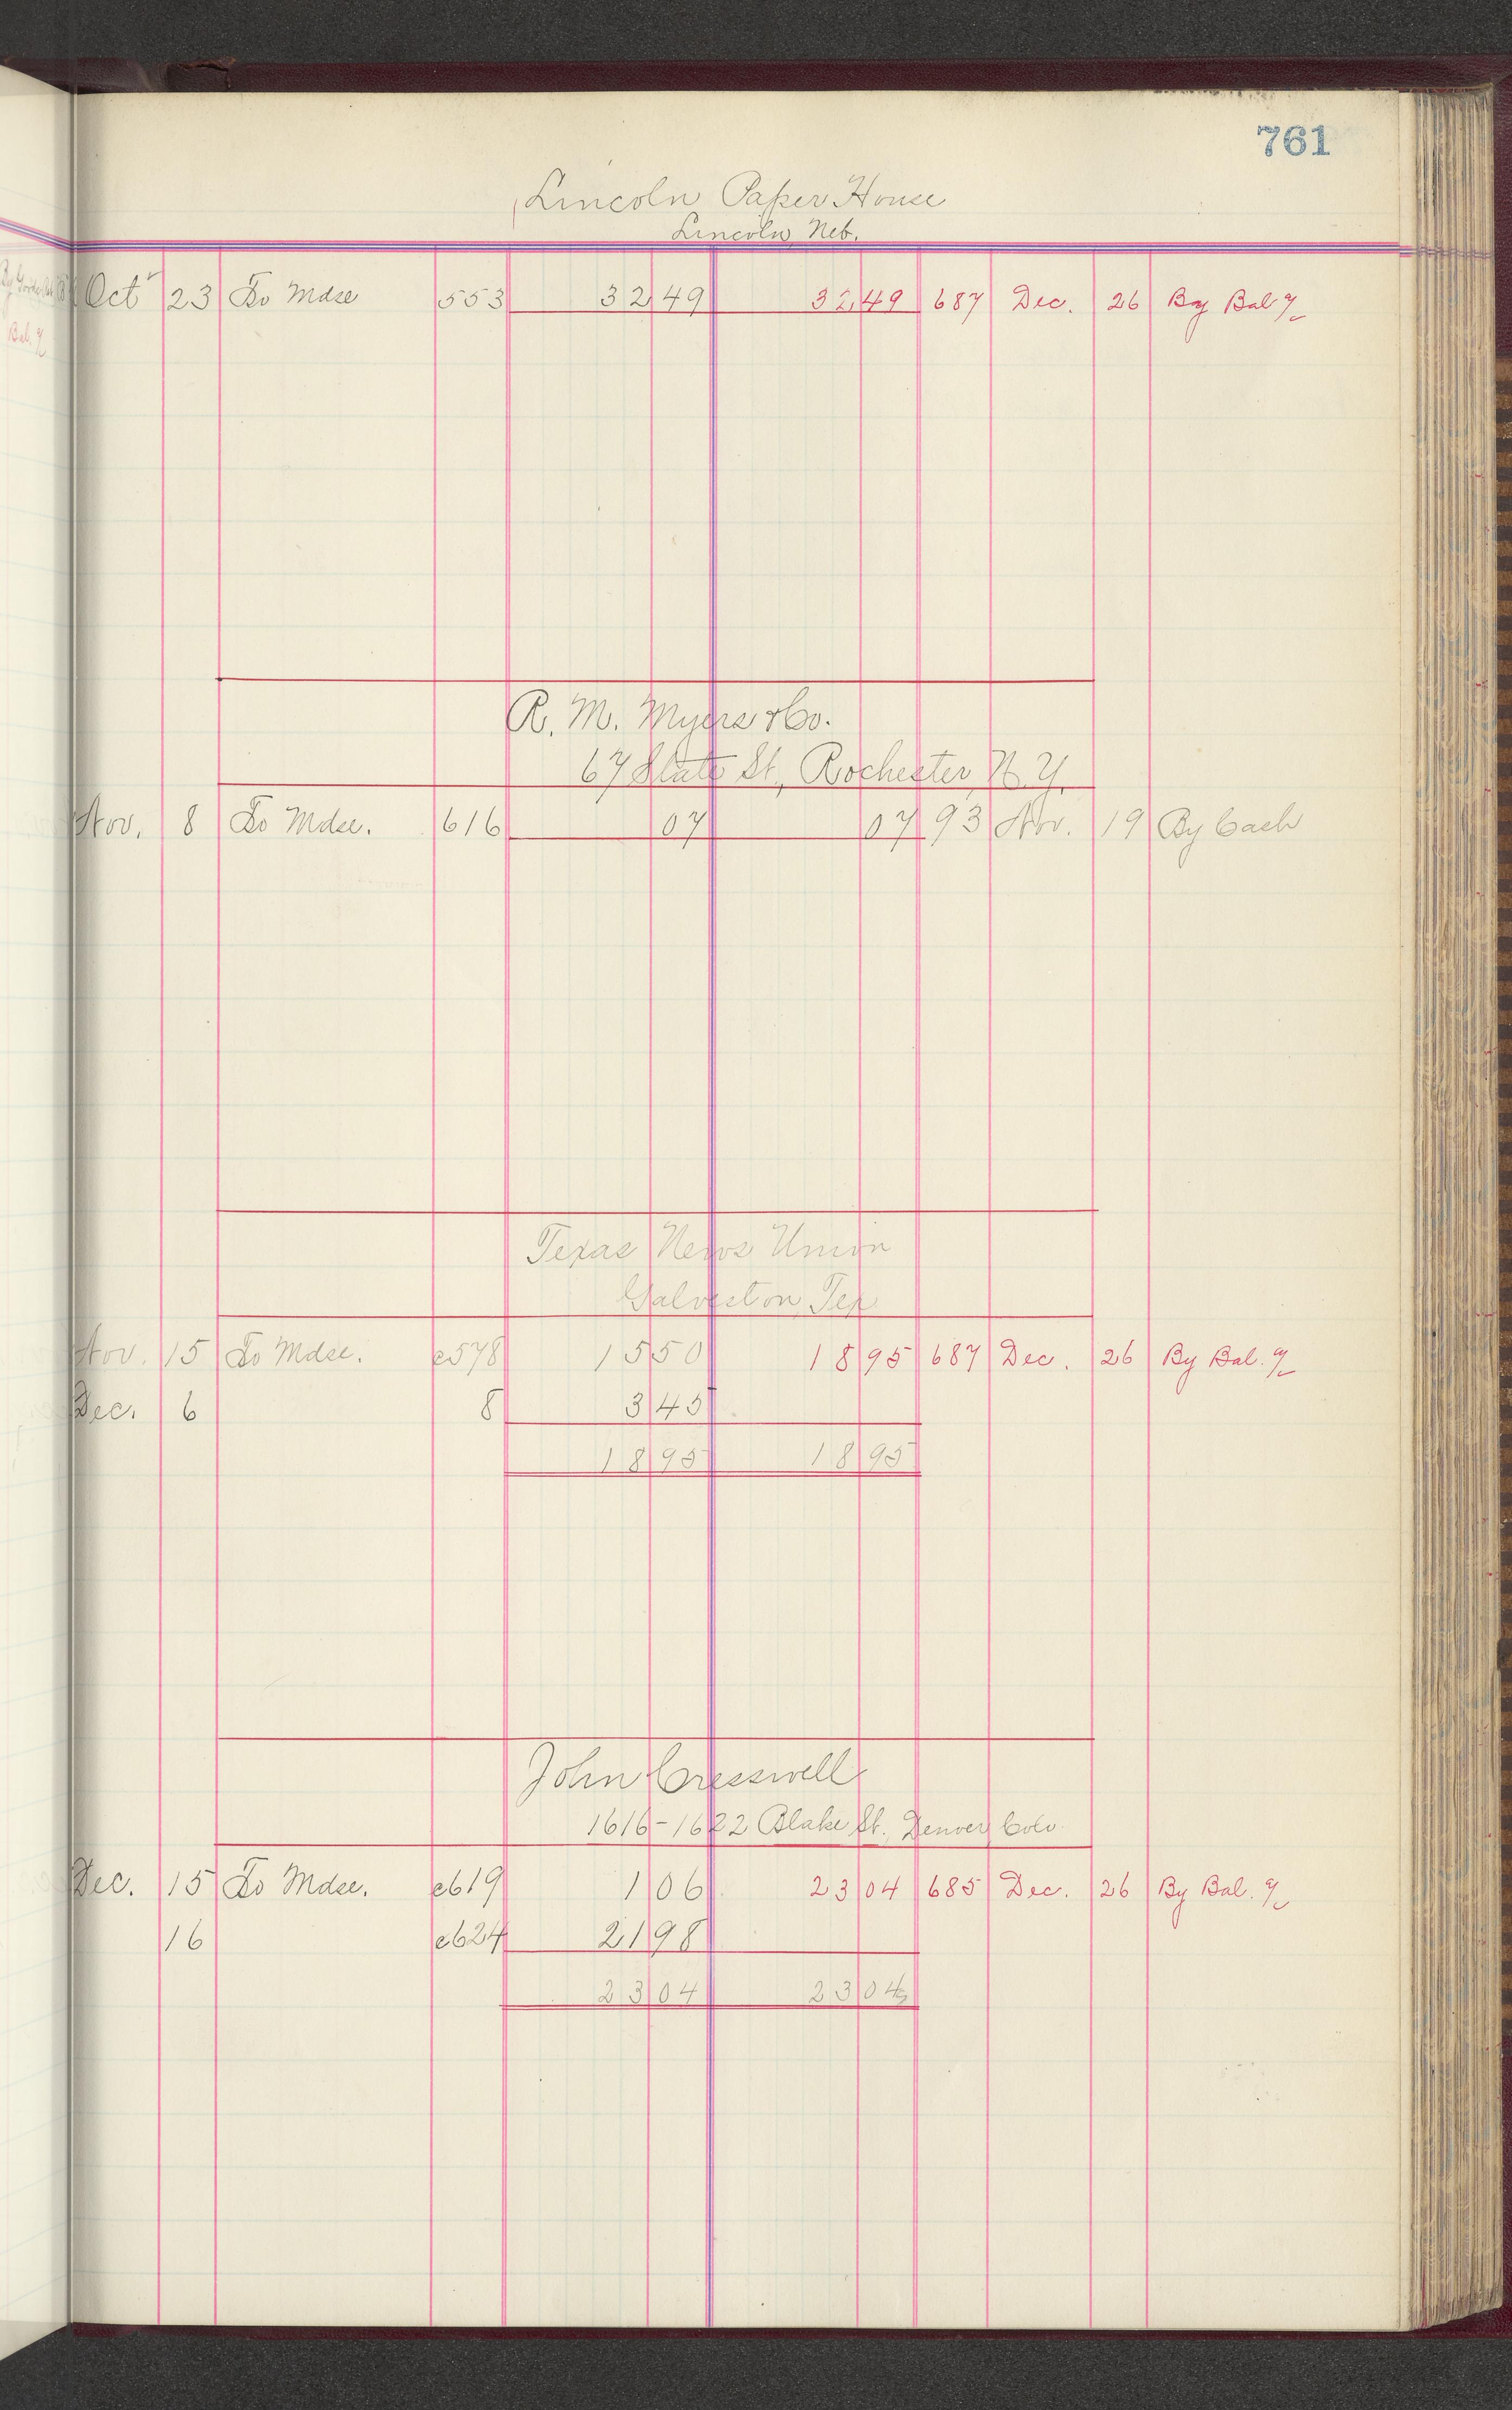 761
Lincoln Paper House
Lincoln, Neb.
Oct 23 To Mdse 553 32 49 32 49 687 Dec. 26 By Bal
R. M. Myers & Co.
67 State St., Rochester, N.Y.
Nov. 8 To Mdse. 616 07 07 93 Nov. 19 By Cash
Texas News Union
Galveston, Tex
Nov. 15 To Mdse. c578 15 50 18 95 687 Dec. 26 By Bal.
Dec. 6 8 3 45
18 95 18 95
John Cresswell
1616-1622 Blake St., Denver, Colo.
Dec. 15 To Mdse. c619 1 06 23 04 685 Dec. 26 By Bal.
16 c624 21 98
23 04 23 04